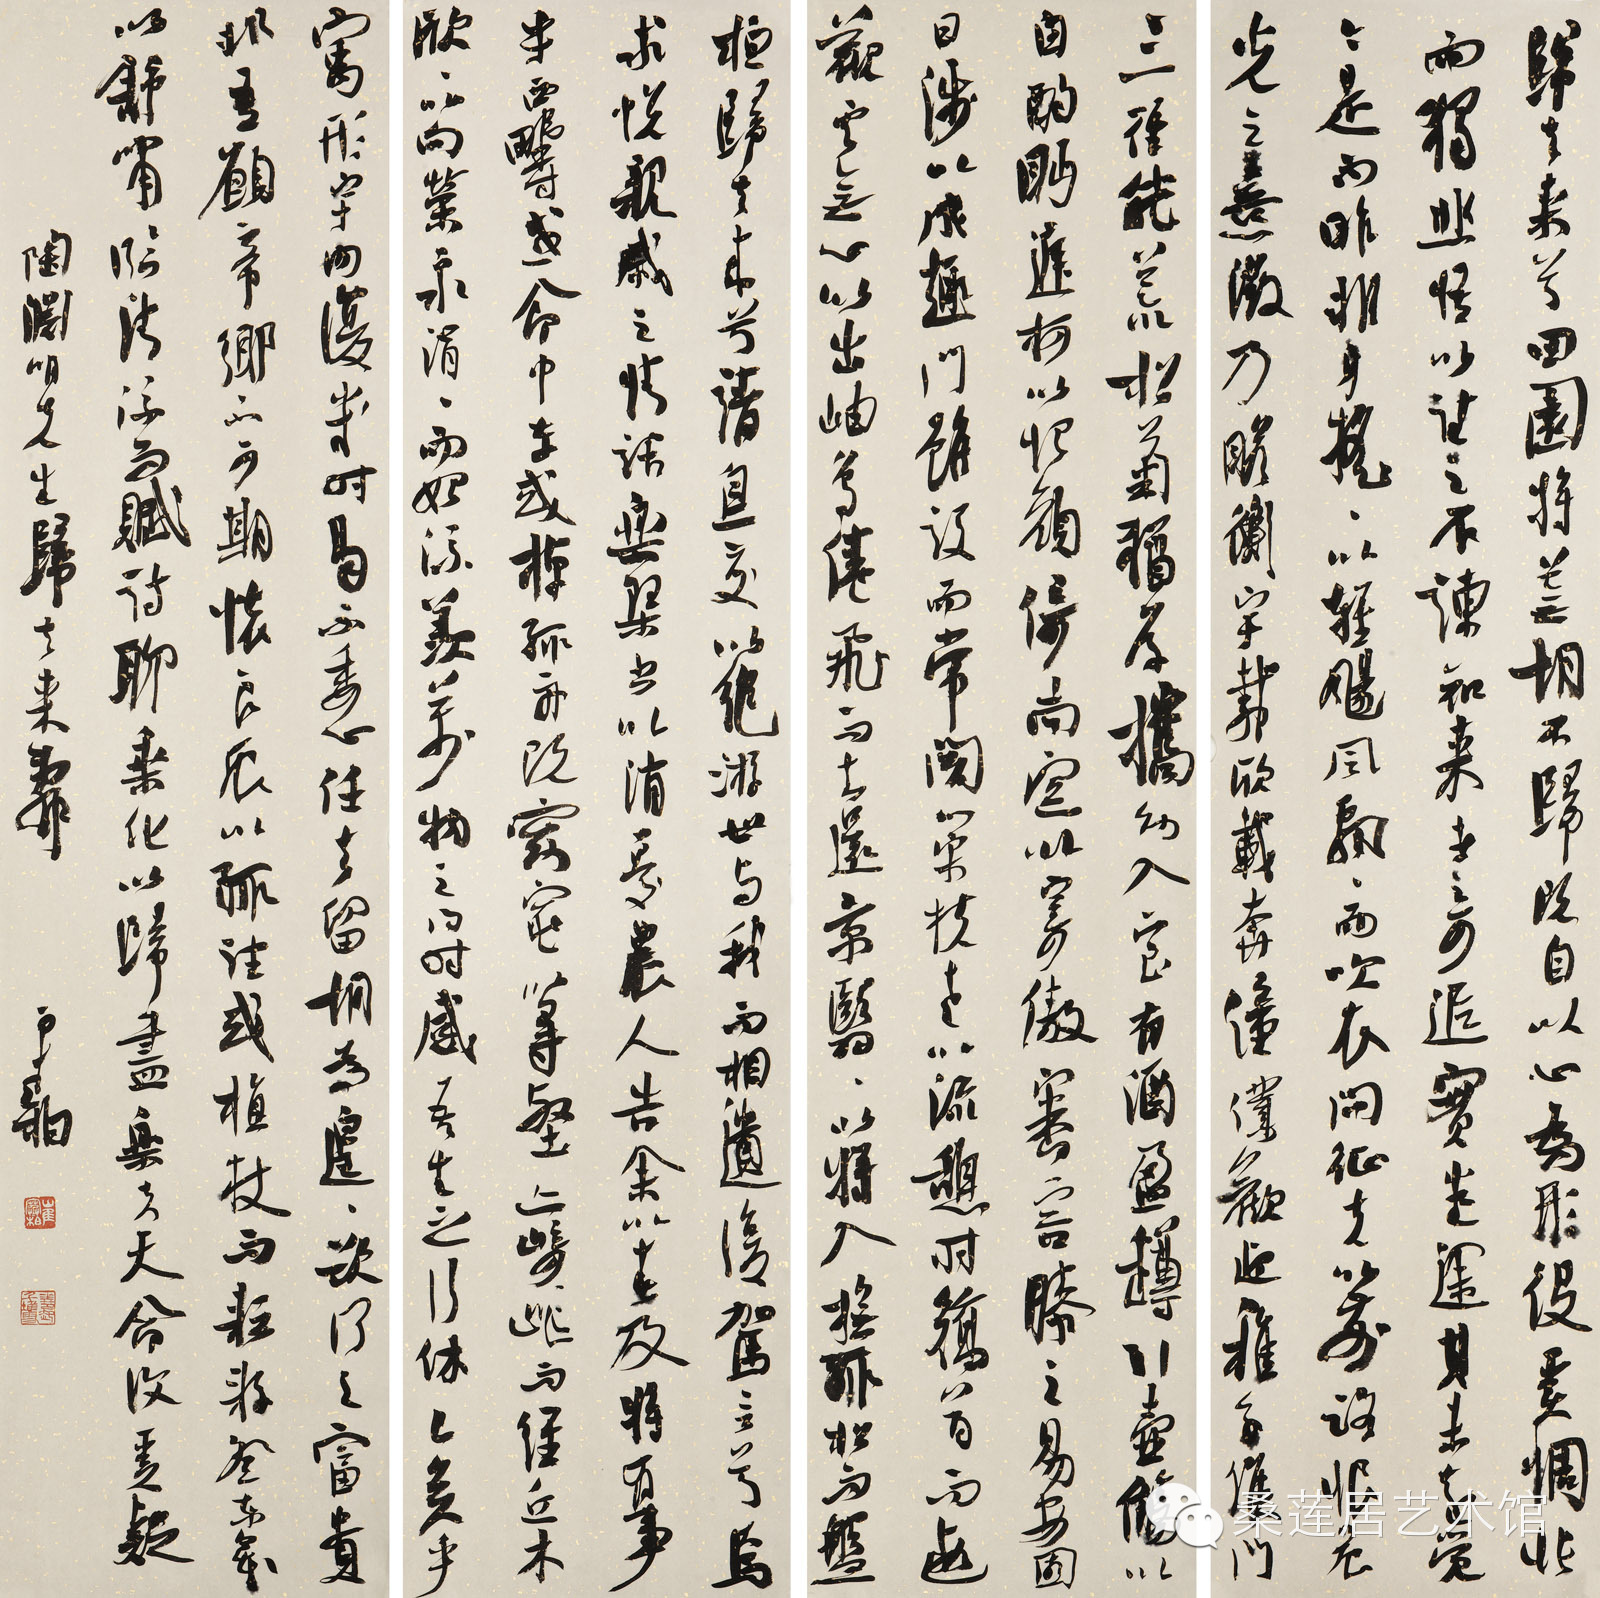 歸去來兮田園將蕪胡不歸既自以心為形役奚惆悵
而獨悲悟以往之不諫知來者之可追實迷途其未遠覺
今是而昨非舟搖、以輕颺風飄、而吹衣問征夫以前路恨晨
光之熹微乃瞻衡宇載欣載奔僮僕歡迎稚子候門
三徑就荒松菊猶存攜幼入室有酒盈樽引壺觴以
自酌眄庭柯以怡顏倚南窗以寄傲審容膝之易安園
日涉以成趣門雖設而常關策扶老以流憩時矯首而遐
觀雲無心以出岫鳥倦飛而知還景翳、以將入撫孤松而盤
桓歸去來兮請息交以絕游世與我而相遺復駕言兮焉
求悅親戚之情話樂琴書以消憂農人告余以春及將有事
乎西疇或命巾車或棹孤舟既窈窕以尋壑亦崎嶇而經丘木
欣、以向榮泉涓、而始流羨萬物之得時感吾生之行休已矣乎
寓形宇內復幾時曷不委心任去留胡為遑、欲何之富貴
非吾願帝鄉不可期懷良辰以孤往或植杖而耘耔登東皋
以舒嘯臨清流而賦詩聊乘化以歸盡樂夫天命復奚疑
陶淵明先生歸去來辭
寒柏
桑莲居艺术馆